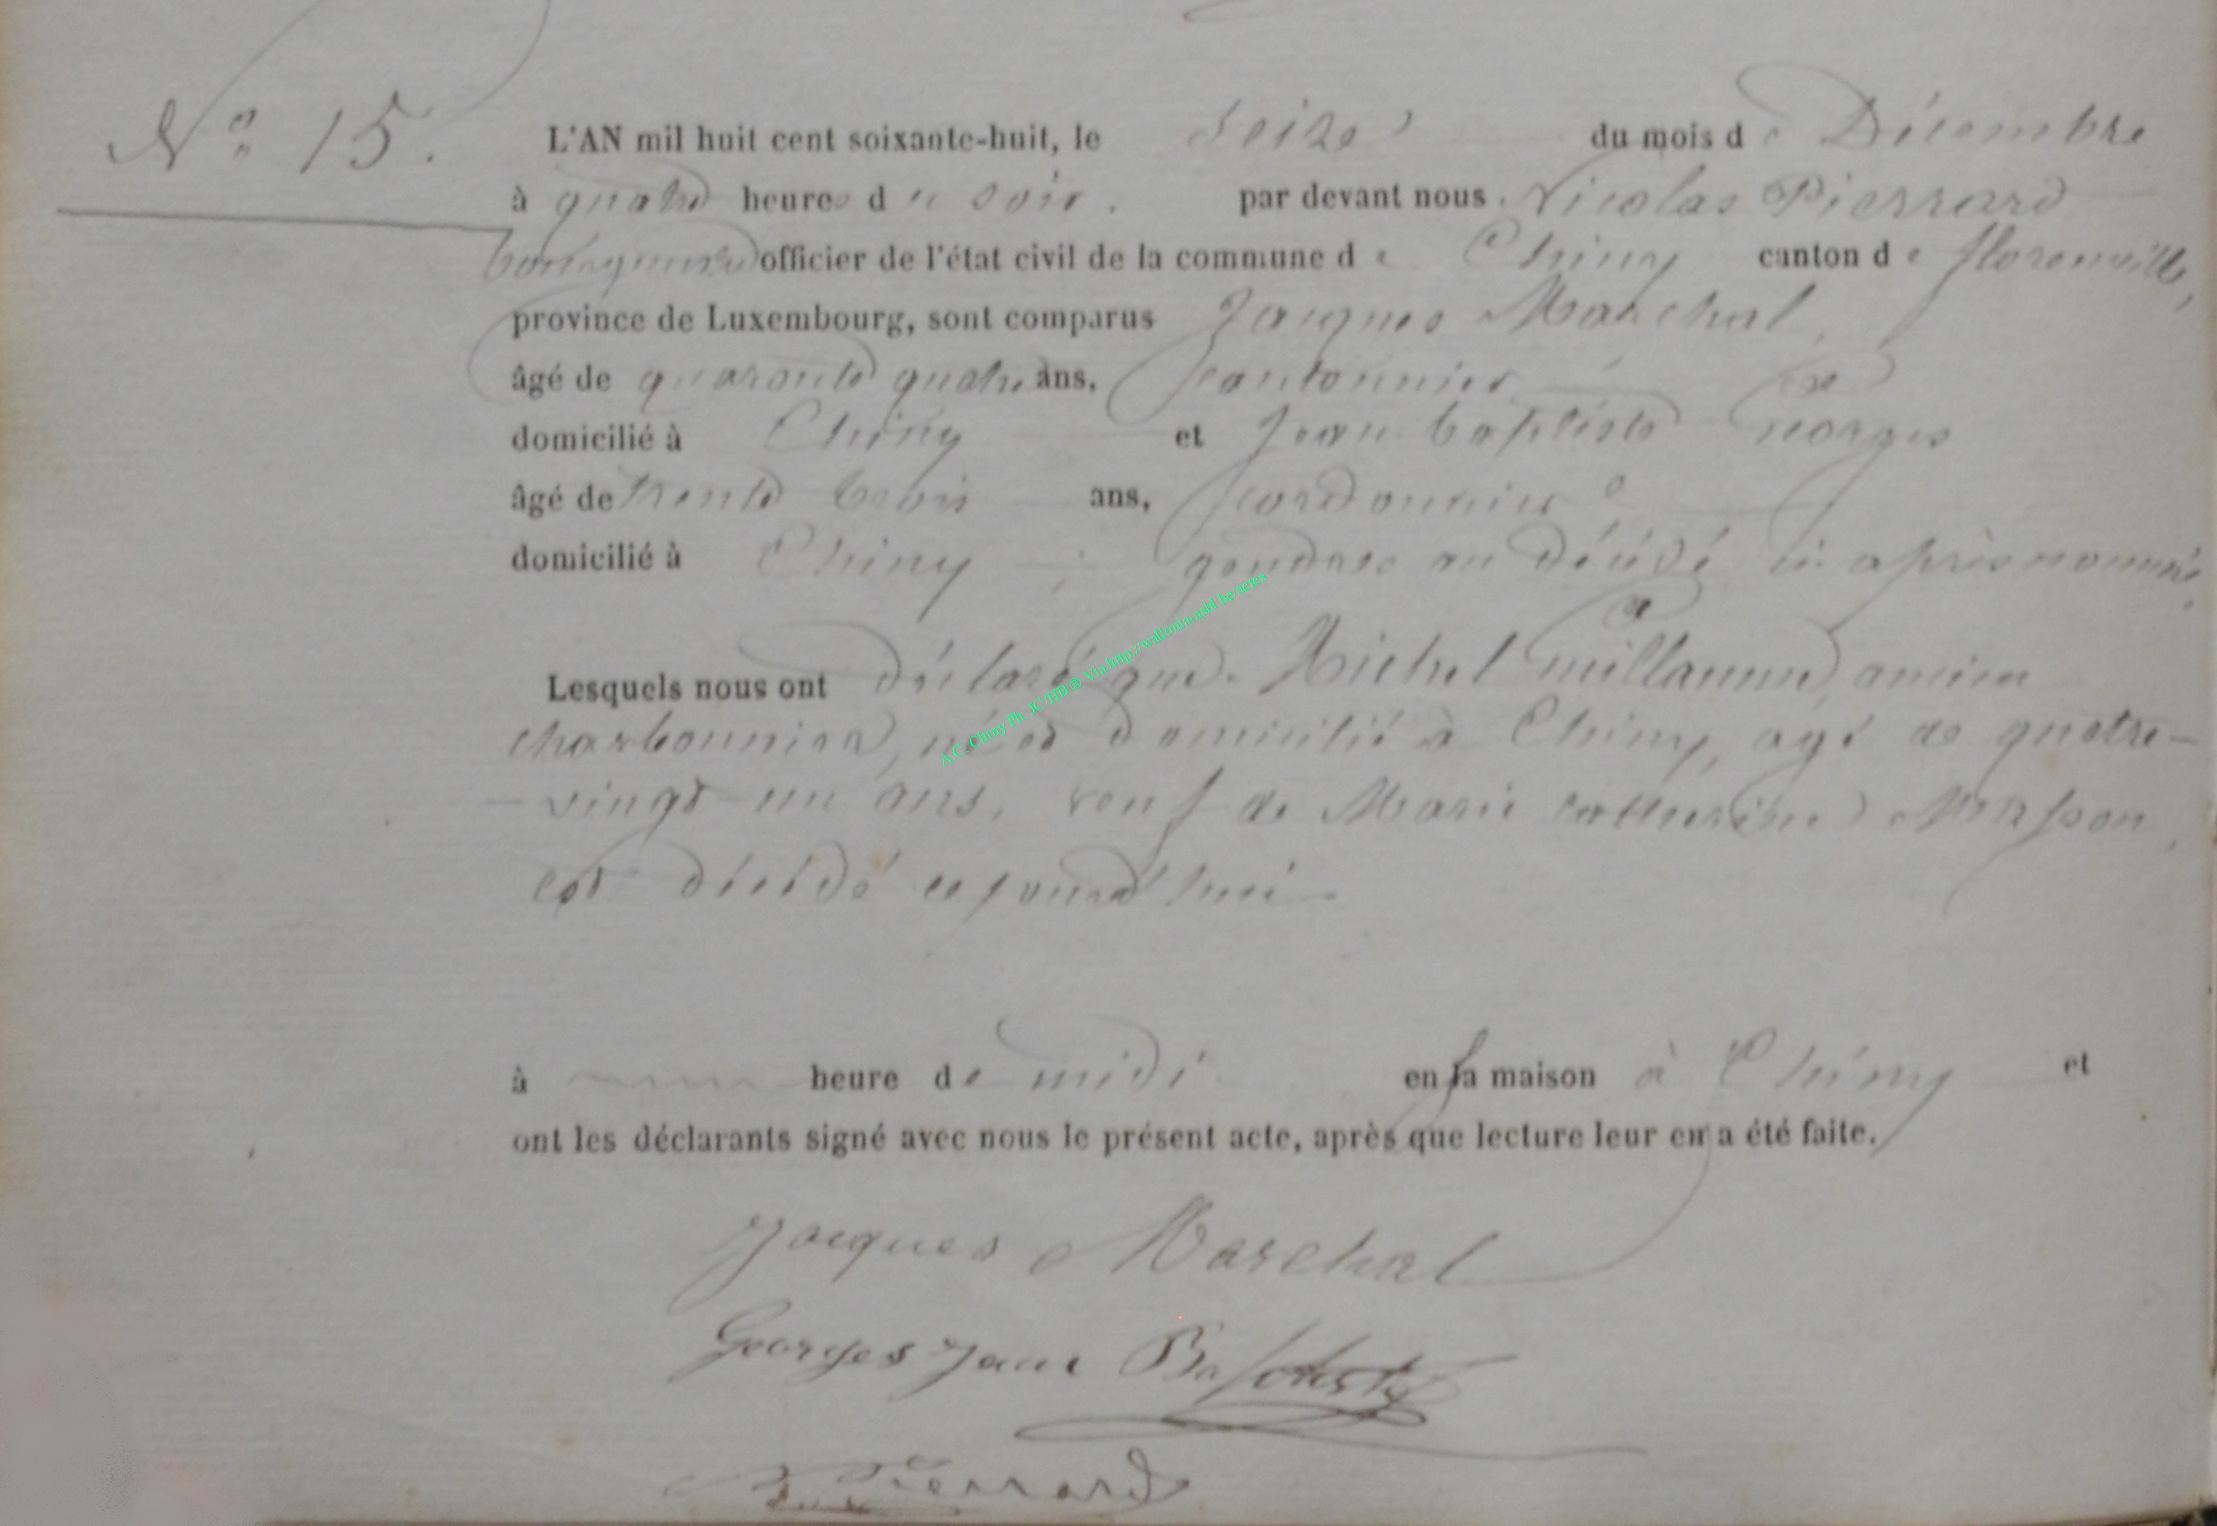 N° 15.
L'AN mil huit cent soixante-huit, le seize du mois de Décembre
à quatre heures du soir. par devant nous Nicolas Pierrard
bourgmestre officier de l'état civil de la commune de Chiny canton de florenville,
province de Luxembourg, sont comparus Jacques Marchal,
âgé de quarante quatre ans, cantonnier
domicilié à Chiny et Jean baptiste Georges
âgé de trente trois ans, cordonnier
domicilié à Chiny ; gendres au décédé ci-après nommé,
Lesquels nous ont déclaré que Michel Guillaume, ancien
charbonnier, né et domicilié à Chiny, agé de quatre-
-vingt un ans, veuf de Marie Catherine Masson,
est décédé cejourd'hui
à heure de midi en sa maison à Chiny et
ont les déclarants signé avec nous le présent acte, après que lecture leur en a été faite.
A.C. Chiny Ph. JC/HB ® Via http://wallonia-asbl.be/actes
Jacques Marchal
Georges Jean Baptiste
N. Pierrard